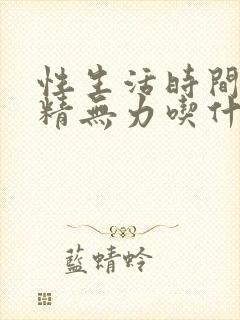 性生活時間
精無力喫什
藍蜻蛉